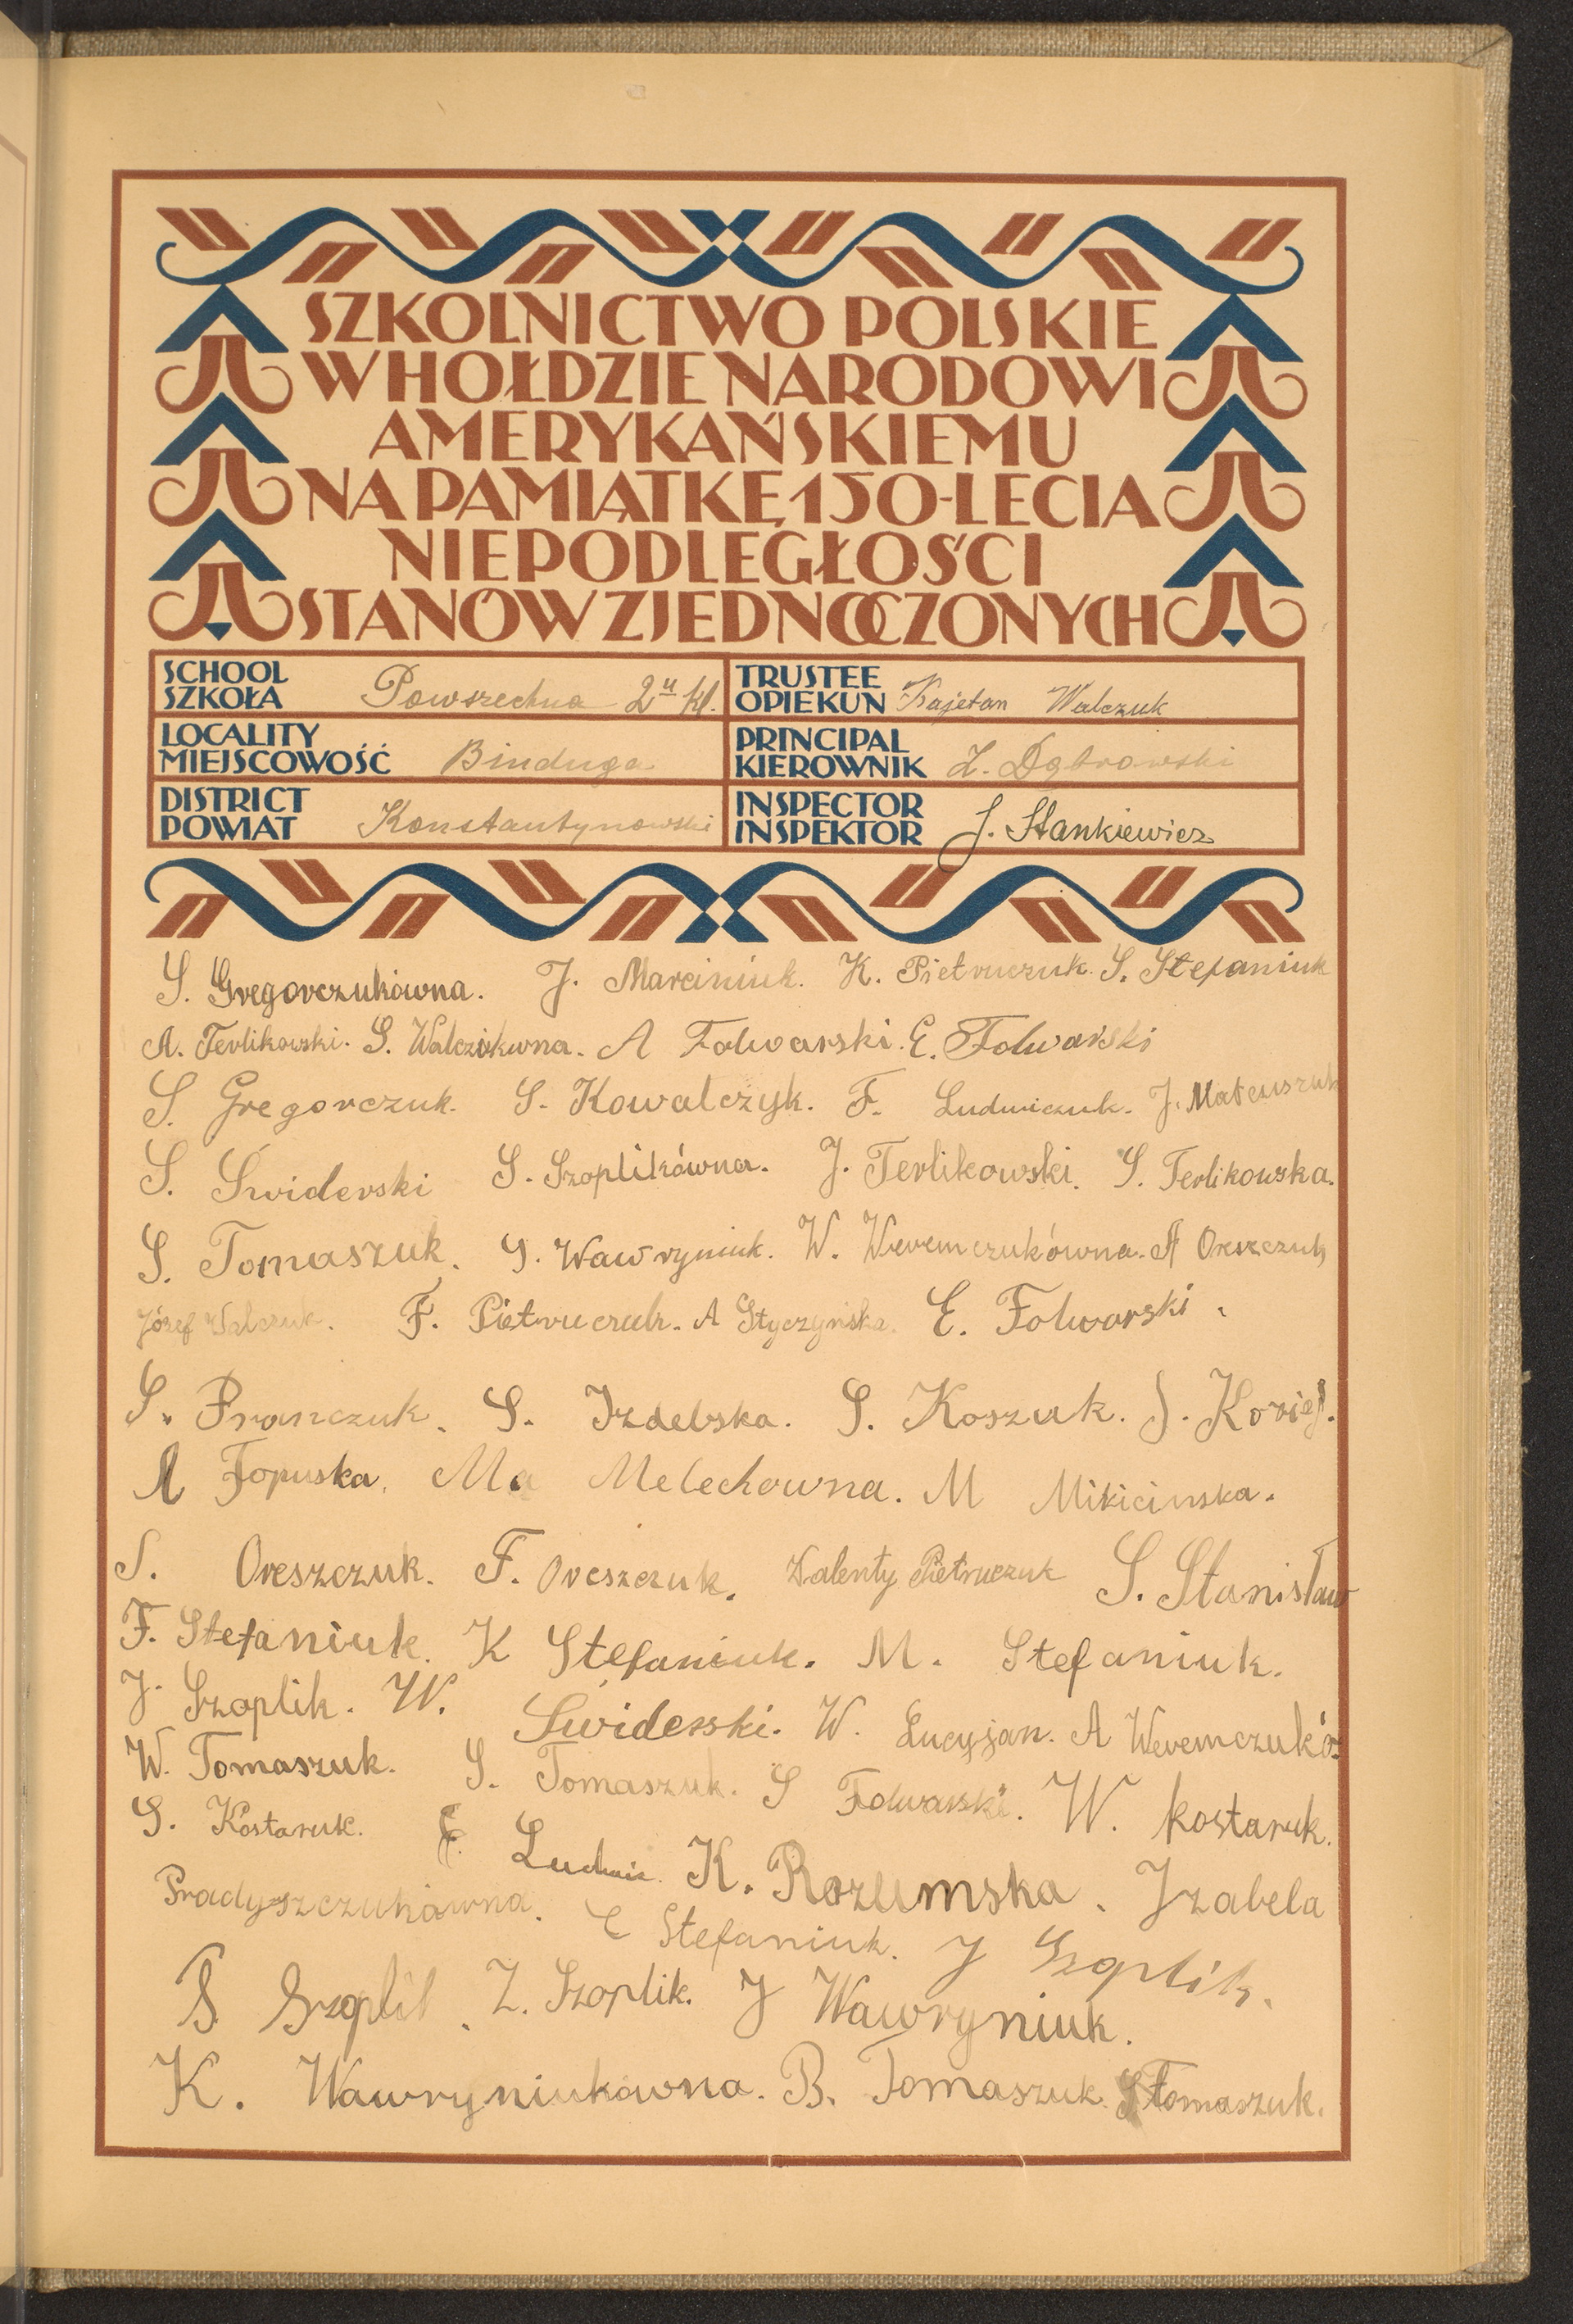 SZKOLNICTWO POLSKIE
W HOŁDZIE NARODOWI
AMERYKAŃSKIEMU
NA PAMIĄTKĘ 150-LECIA
NIEPODLEGŁOŚCI
STANÓW ZJEDNOCZONYCH
SCHOOL
SZKOŁA Powszechna 2u kl.
TRUSTEE
OPIEKUN Kajetan Walczuk
LOCALITY
MIEJSCOWOŚĆ Binduga
PRINCIPAL
KIEROWNIK Z. Dąbrowski
DISTRICT
POWIAT Konstantynowski
INSPECTOR
INSPEKTOR J. Stankiewicz
S. Gregorczukówna. J. Marciniuk. K. Pietruczuk. S. Stefaniuk
A. Terlikowski. S. Walczukwna. A Folwarski. E. Folwarski
S. Gregorczuk. S. Kowalczyk. F. Ludwiczuk. J. Mateuszuk
S. Świderski S. Szoplikówna. J. Terlikowski. S. Terlikowska.
S. Tomaszuk. S. Wawryniuk. W. Weremczukówna. A Oreszczuk
Józef Walczuk. F. Pietruczuk. A Styczyńska. E. Folwarski.
S. Franczuk. S. Izdebska. S. Koszuk. J.
A Łopuska. Ma Melechowna. M Mikicinska.
S. Oreszczuk. F. Oreszczuk. Walenty Pietruczuk S. Stanisław
F. Stefaniuk. K Stefaniuk. M. Stefaniuk.
J. Szoplik. W. Świderski. W. Lucyjan. A Weremczukó.
W. Tomaszuk. S. Tomaszuk. S Folwarski. W. kostaruk.
S. Kostaruk. K. Rozumska. Izabela
Pradyszczukówna. E Stefaniuk. J Szoplik.
S. Szoplik. Z. Szoplik. J Wawryniuk.
K. Wawryniukówna. B. Tomaszuk. S Tomaszuk.